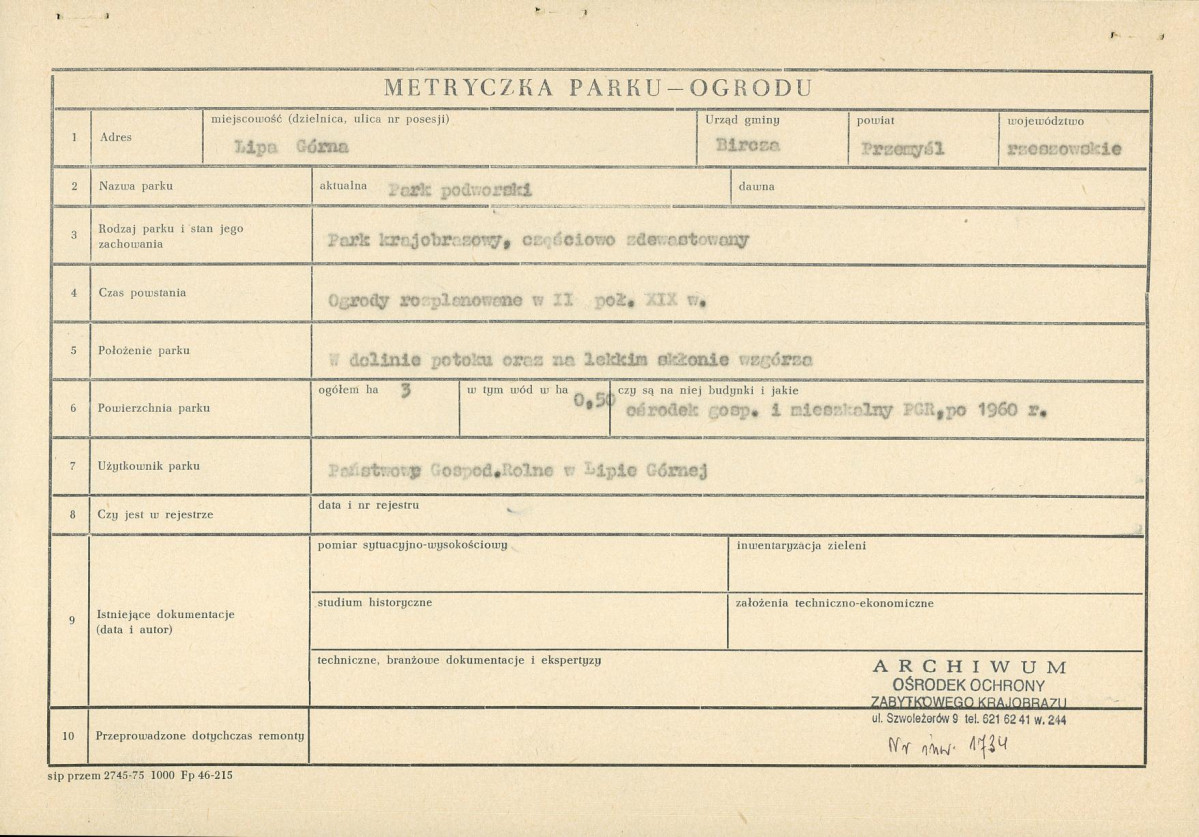 METRYCZKA PARKU — OGRODU
1 Adres miejscowość (dzielnica, ulica nr posesji) Urząd gminy powiat województwo
Lipa Górna Bircza Przemyśl rzeszowskie
2 Nazwa parku aktualna Park podworski dawna
3 Rodzaj parku i stan jego
zachowania
Park krajobrazowy, częściowo zdewastowany
4 Czas powstania
Ogrody rozplanowane w II poł. XIX w.
5 Położenie parku
W dolinie potoku oraz na lekkim skłonie wzgórza
6 Powierzchnia parku ogółem ha 3 w tym wód w ha 0,50 czy są na niej budynki i jakie
ośrodek gosp. i mieszkalny PGR,po 1960 r.
7 Użytkownik parku
Państwowe Gospod.Rolne w Lipie Górnej
8 Czy jest w rejestrze data i nr rejestru
9 Istniejące dokumentacje
(data i autor)
pomiar sytuacyjno-wysokościowy inwentaryzacja zieleni
studium historyczne założenia techniczno-ekonomiczne
techniczne, branżowe dokumentacje i ekspertyzy
ARCHIWUM
OŚRODEK OCHRONY
ZABYTKOWEGO KRAJOBRAZU
ul. Szwoleżerów 9 tel. 621 62 41 w. 244
10 Przeprowadzone dotychczas remonty
Nr inw. 1734
sip przem 2745-75 1000 Fp 46-215